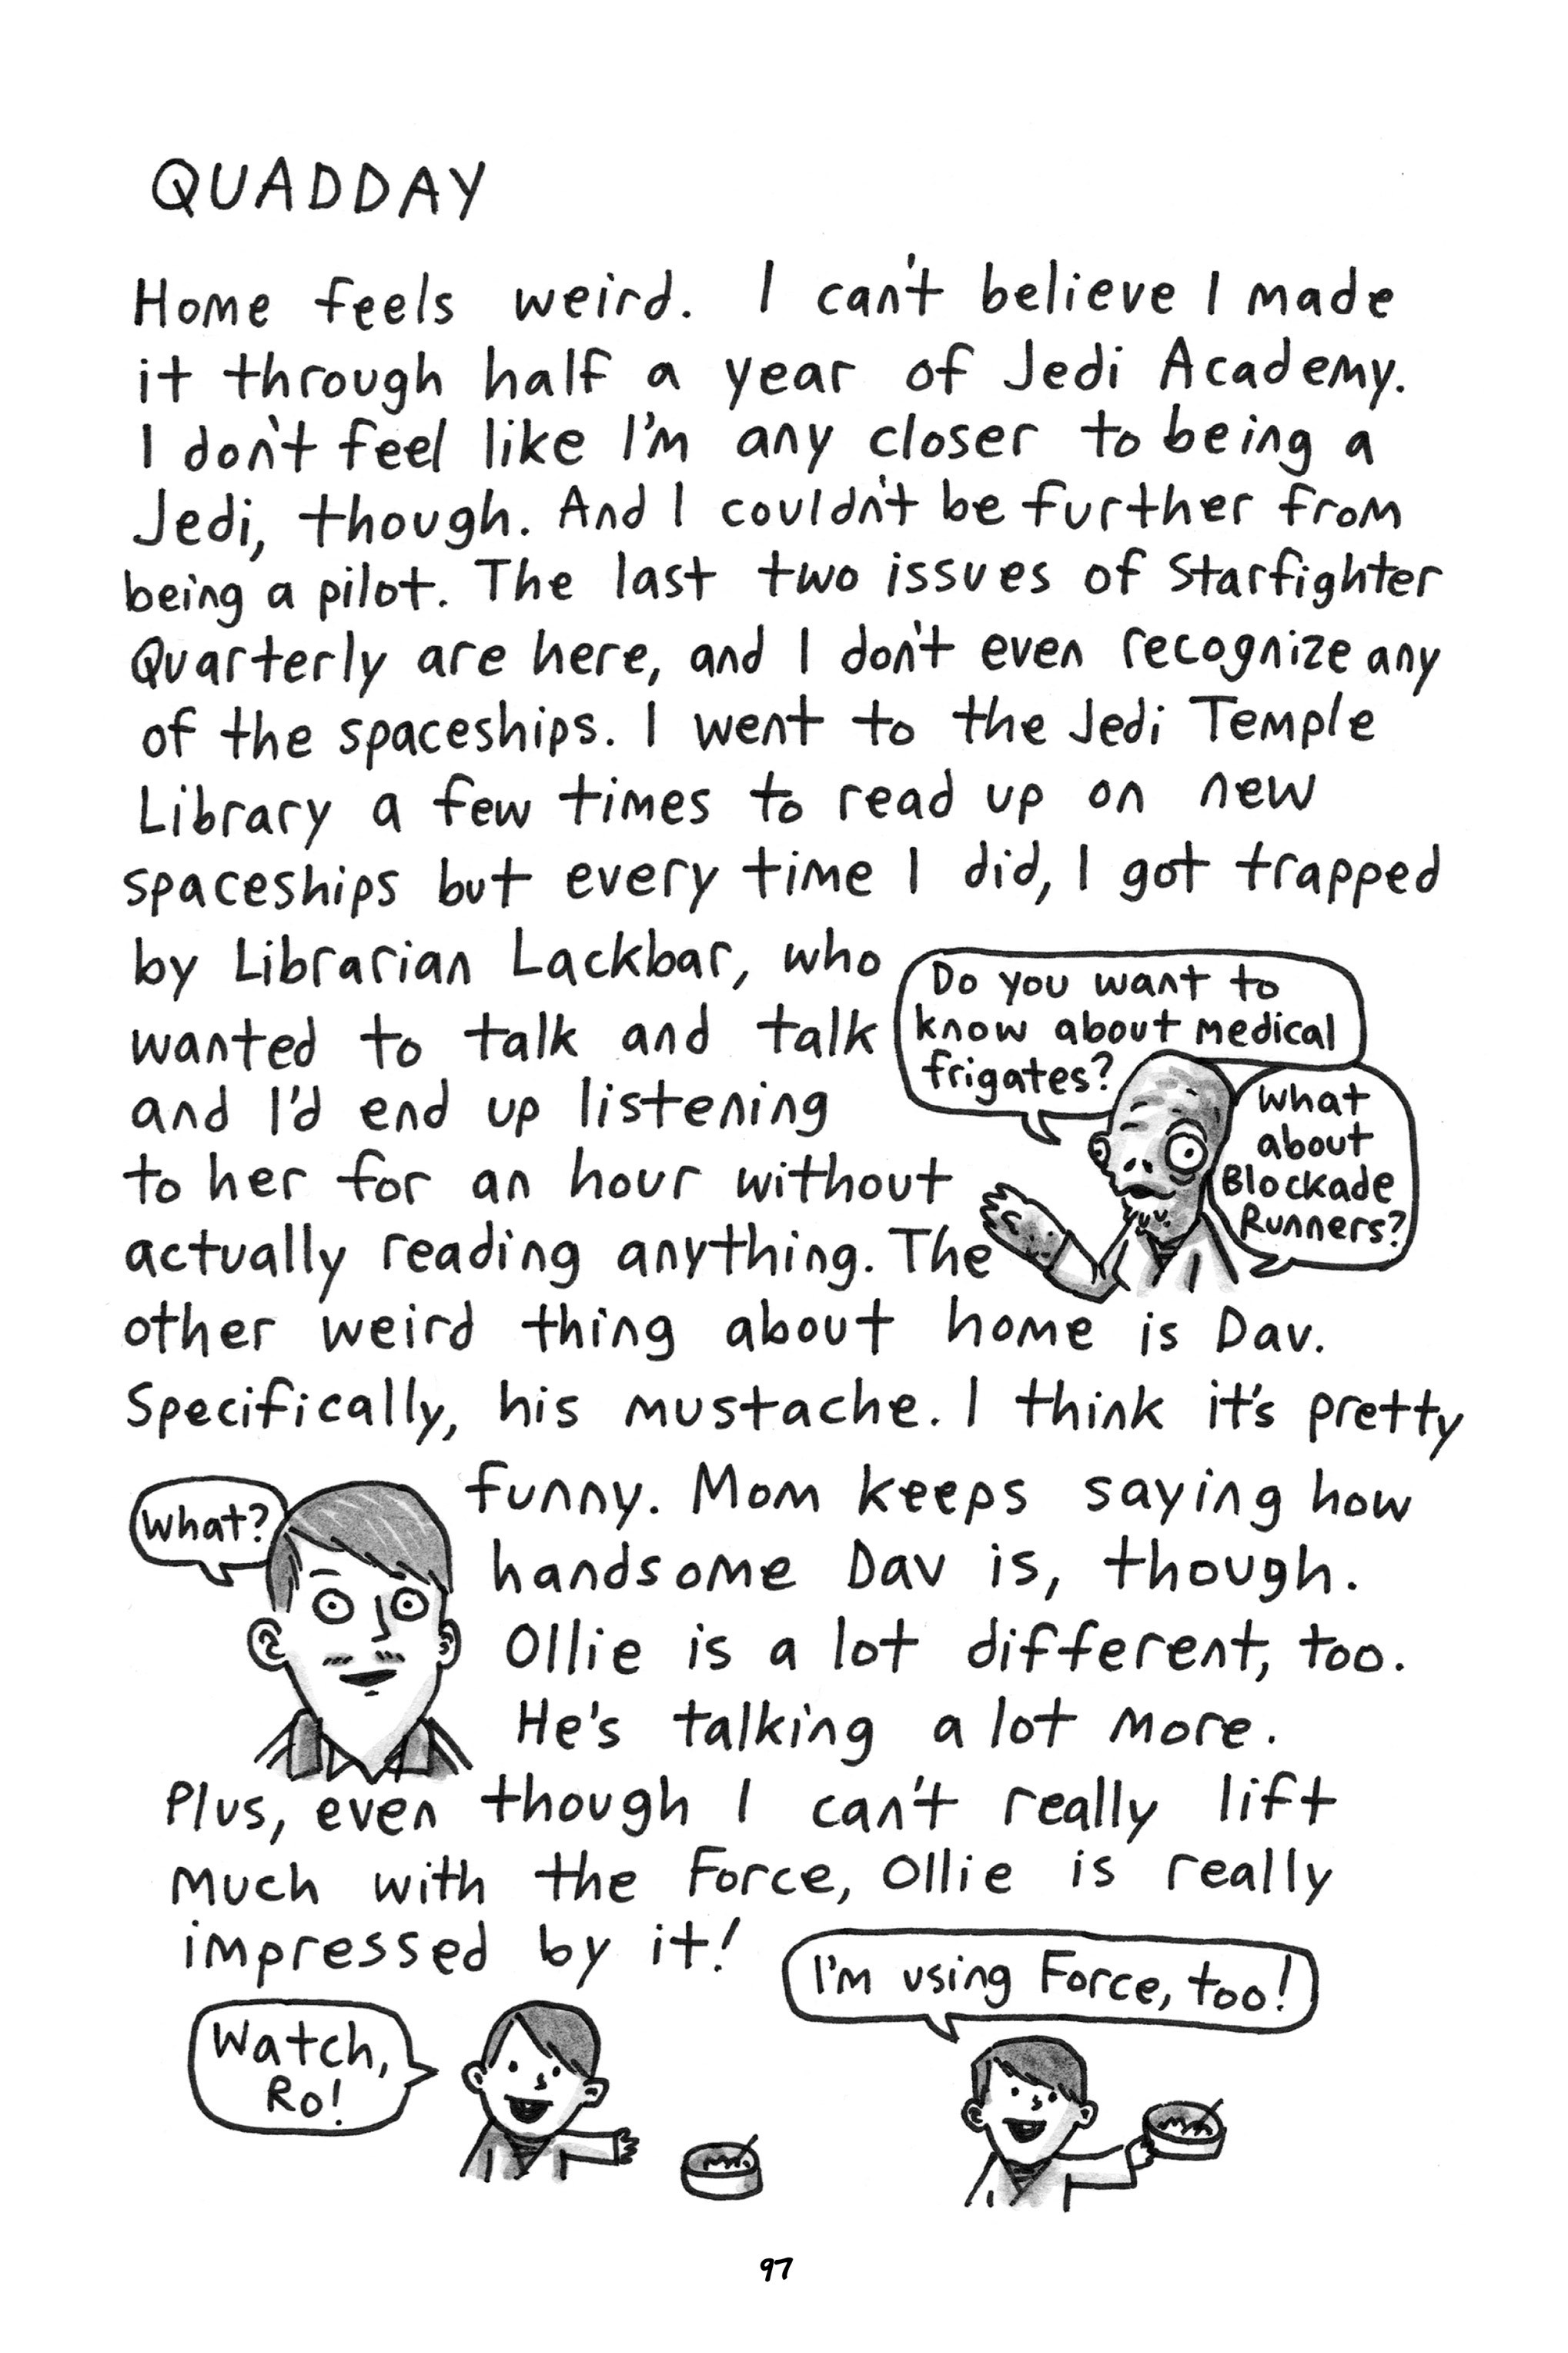 QUADDAY
Home feels weird. I can't believe I made
it through half a year of Jedi Academy.
I don't feel like I'm any closer to being a
Jedi, though. And I couldn't be further from
being a pilot. The last two issues of Starfighter
Quarterly are here, and I don't even recognize any
of the spaceships. I went to the Jedi Temple
Library a few times to read up on new
spaceships but every time I did, I got trapped
by Librarian Lackbar, who
wanted to talk and talk
and I'd end up listening
to her for an hour without
actually reading anything. The
Do you want to
know about medical
frigates?
What
about
Blockade
Runners?
other weird thing about home is Dav.
Specifically, his mustache. I think it's pretty
funny. Mom keeps saying how
handsome Dav is, though.
Ollie is a lot different, too.
He's talking a lot more.
What?
Plus, even though I can't really lift
much with the Force, Ollie is really
impressed by it!
Watch,
Ro!
I'm using Force, too!
97